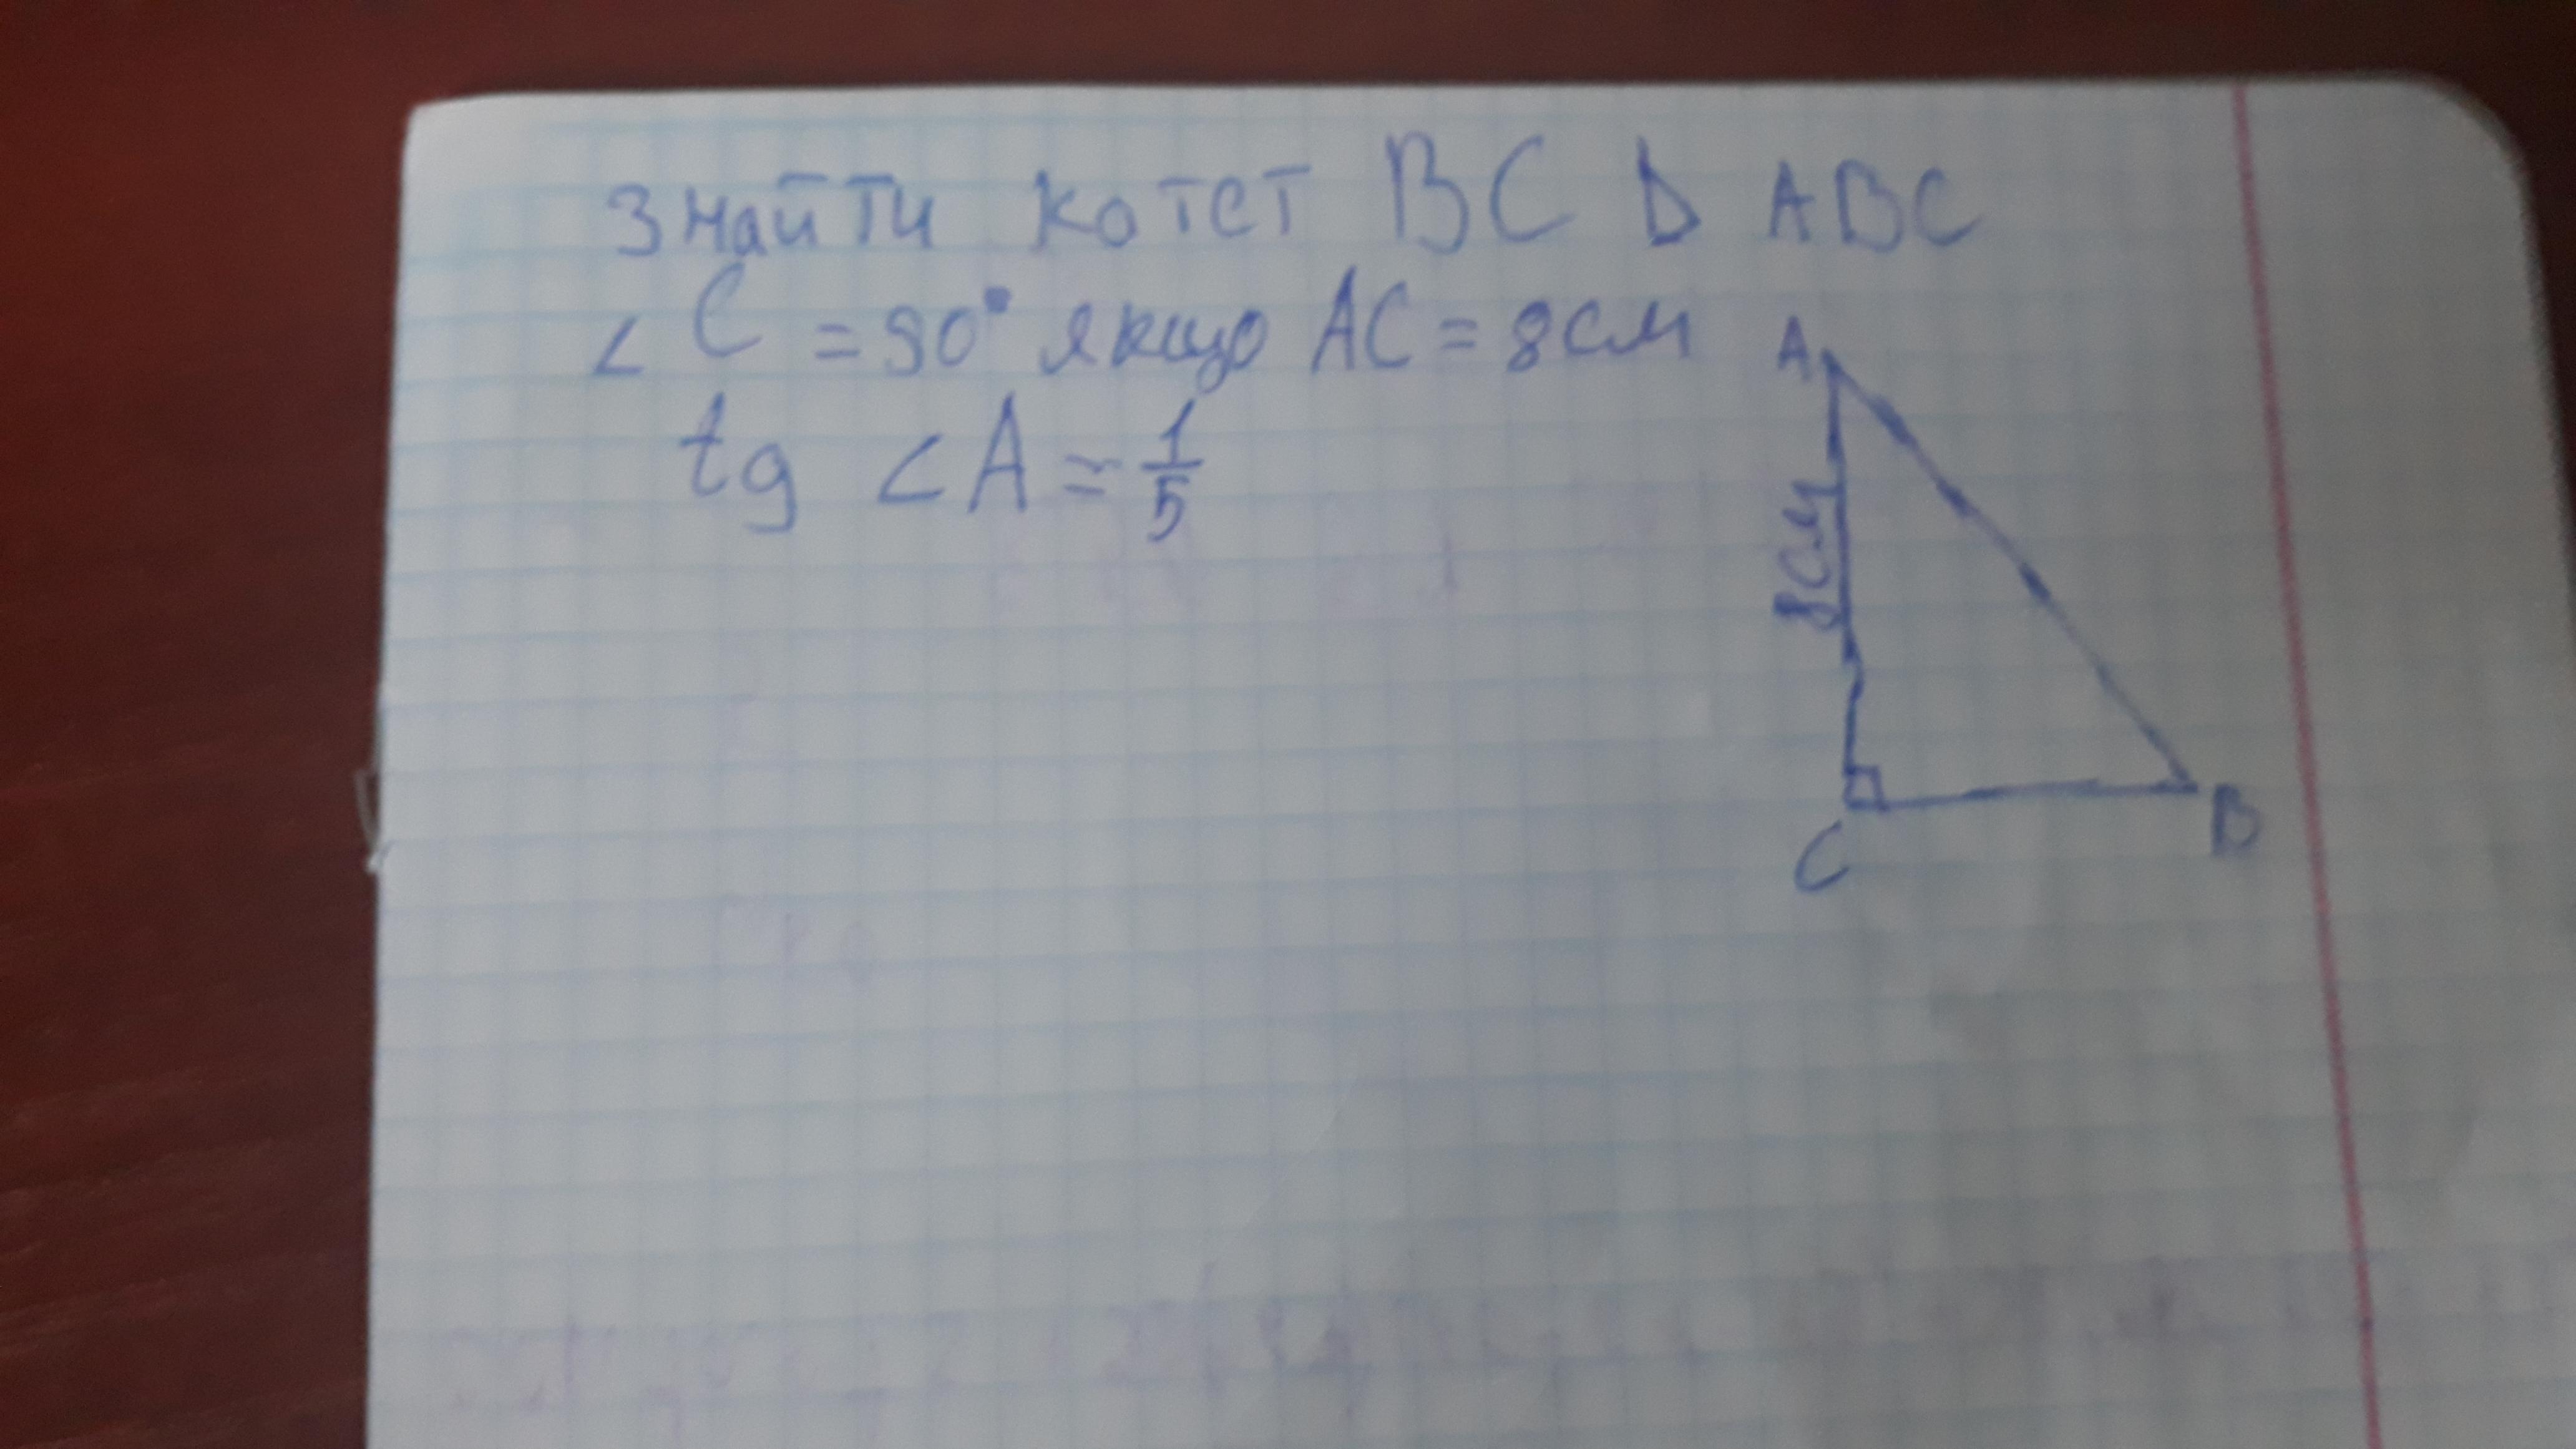 Знайти катет BC Δ ABC
∠ C = 90° якщо AC = 8см
tg ∠A = 1/5
A
8см
C
B